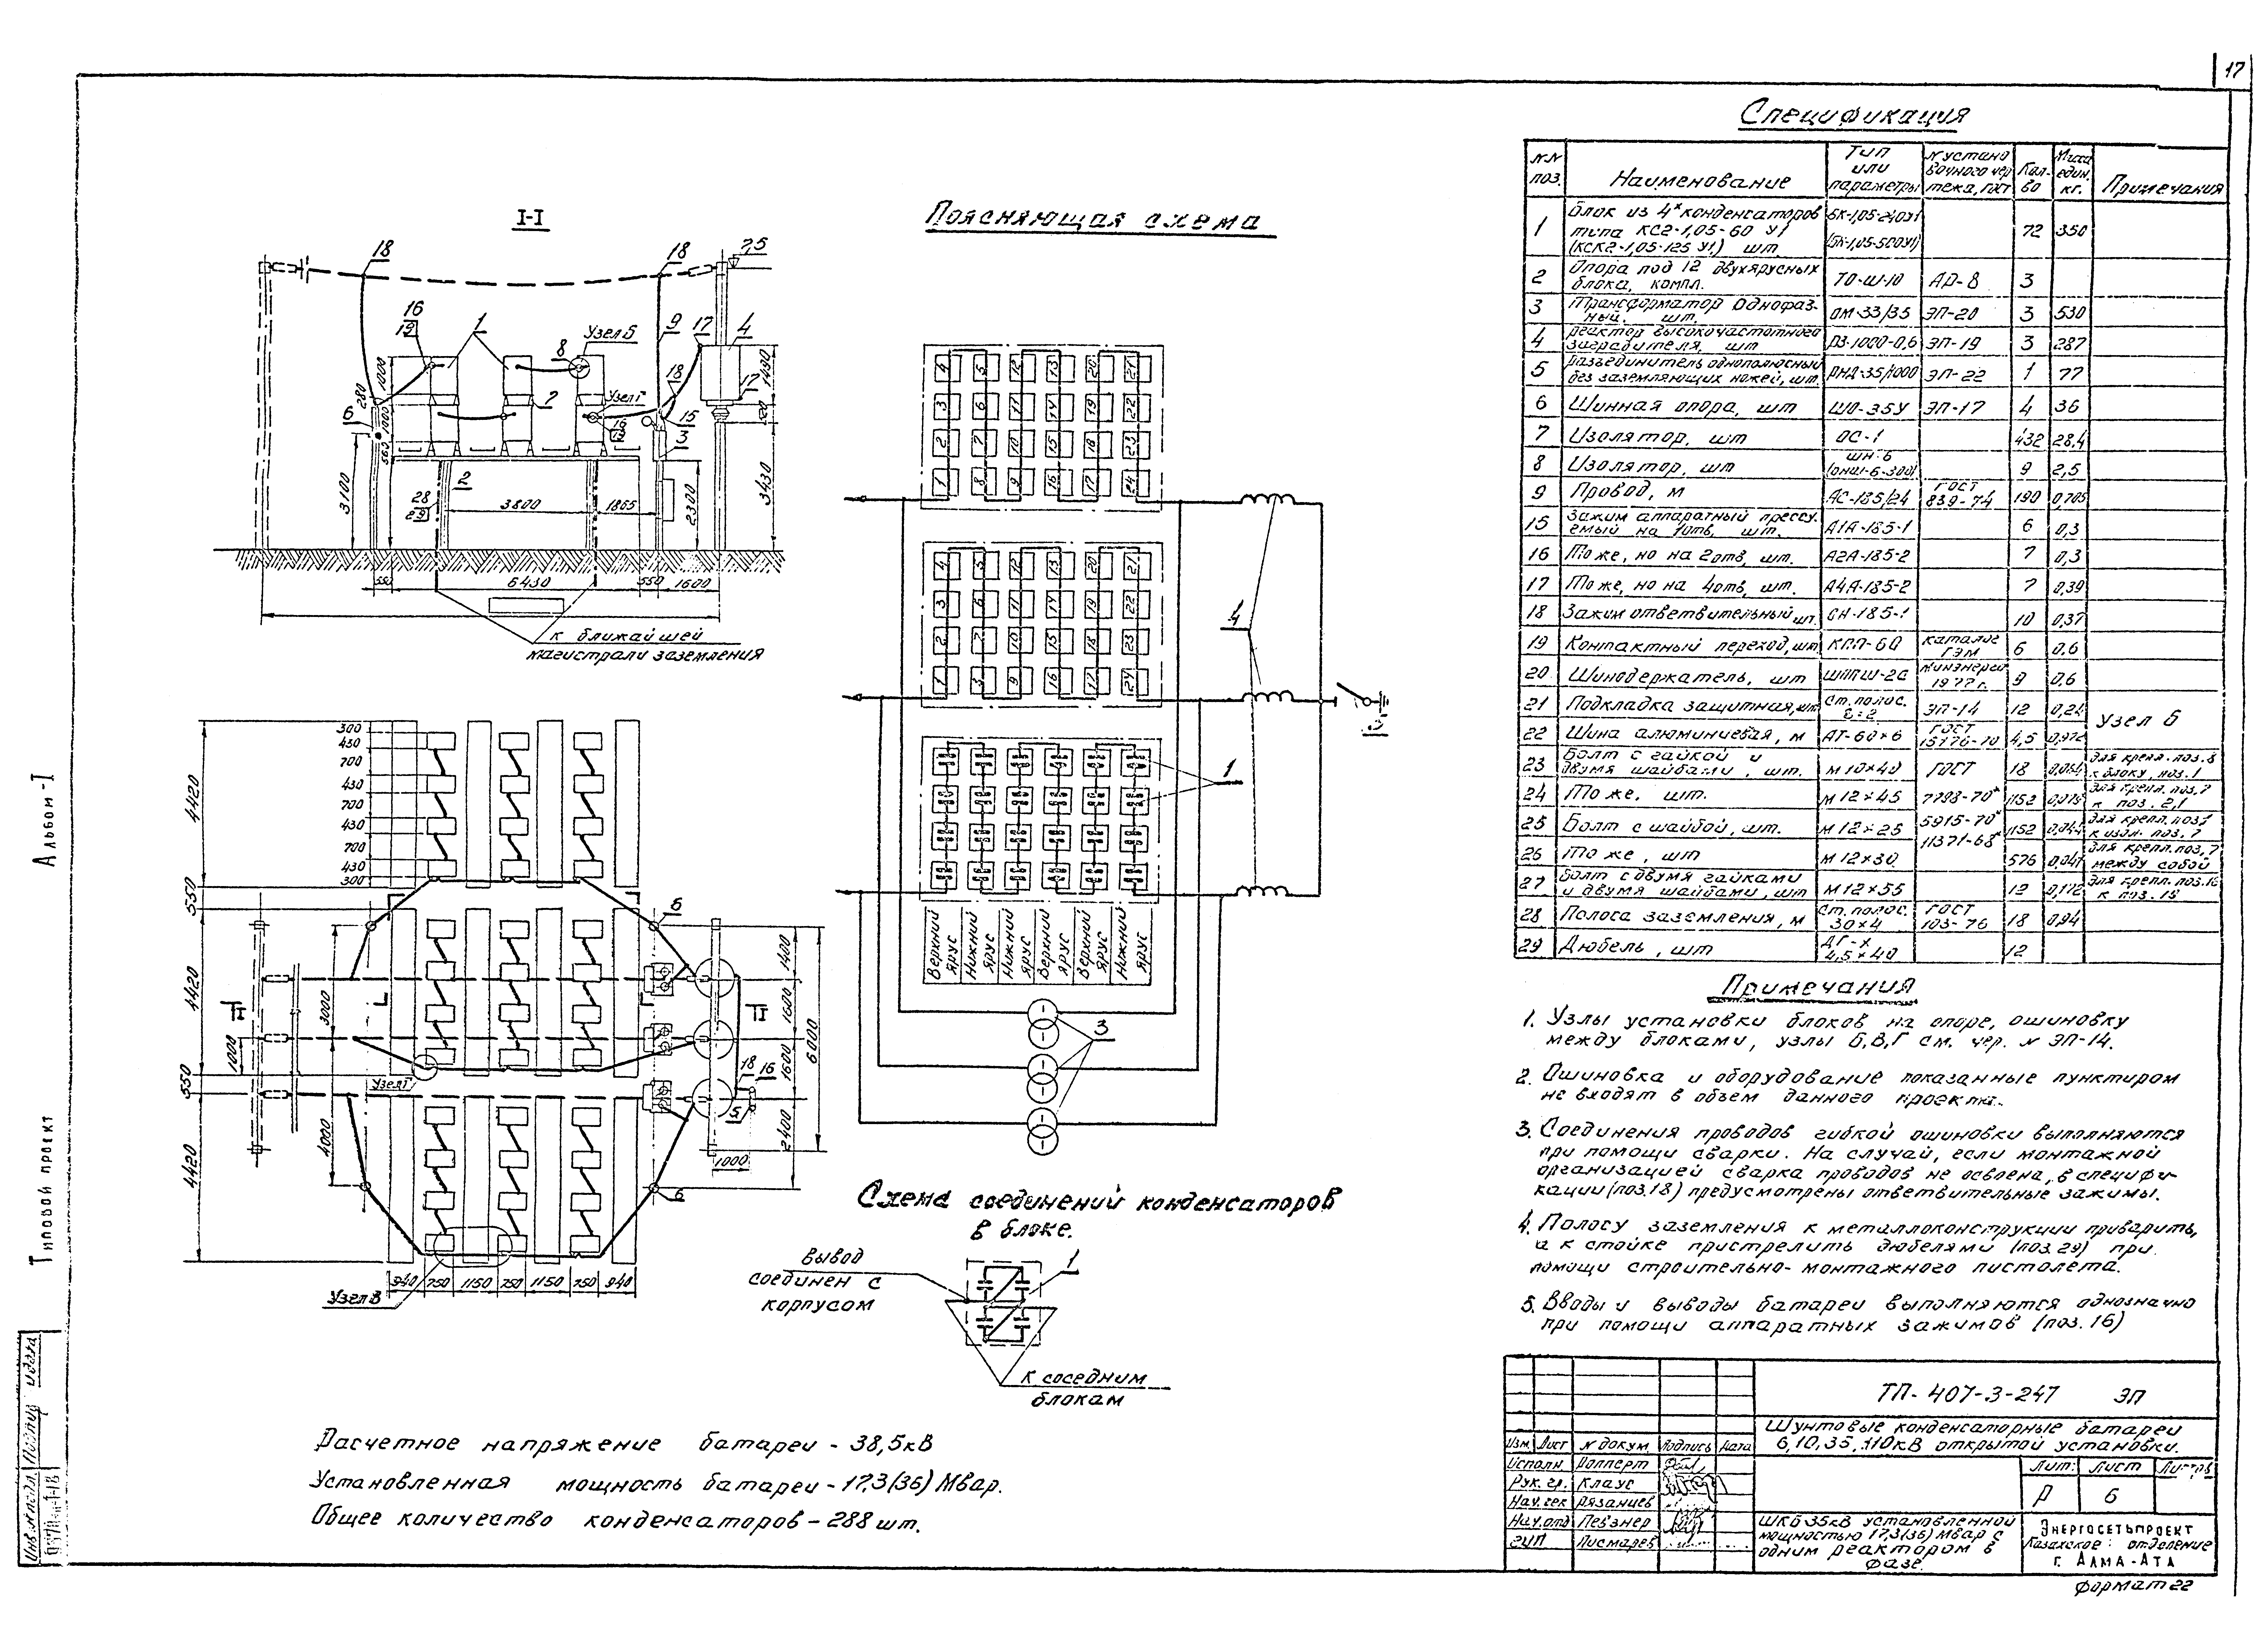 17
Спецификация
№№ поз.
Наименование
Тип или параметры
№ установочного чертежа, ГОСТ
Кол-во
Масса един. кг.
Примечания
1 Блок из 4х конденсаторов типа КС2-1,05-60 У1 (КСК2-1,05-125 У1) шт 72 350
2 Опора под 12 двухярусных блока, компл. ТО-Ш-10 АР-8 3
3 Трансформатор однофазный, шт. ОМ-33/35 ЭП-20 3 530
4 Реактор высокочастотного заградителя, шт РЗ-1000-0,6 ЭП-19 3 287
5 Разъединитель однополюсный без заземляющих ножей, шт. РНД-35/1000 ЭП-22 1 77
6 Шинная опора, шт ШО-35У ЭП-17 4 36
7 Изолятор, шт ОС-1 432 28,4
8 Изолятор, шт ШН-6 (ОНШ-6-300) 9 2,5
9 Провод, м АС-185/24 ГОСТ 839-74 190 0,705
15 Зажим аппаратный прессуемый на 1отв, шт. А1А-185-1 6 0,3
16 То же, но на 2отв, шт. А2А-185-2 7 0,3
17 То же, но на 4отв, шт. А4А-185-2 7 0,39
18 Зажим ответвительный шт. 10 0,37
19 Контактный переход, шт КПП-60 каталог ГЭМ 6 0,6
20 Шинодержатель, шт Минэнерго 1977 г. 9 0,6
21 Подкладка защитная, шт Ст. полос. ЭП-14 12 0,24 Узел Б
22 Шина алюминиевая, м АТ-60×6 ГОСТ 15176-70 4,5 0,972
23 Болт с гайкой и двумя шайбами, шт. М10×40 ГОСТ 18 для крепл. поз. 8 к блоку, поз. 1
24 То же, шт. М12×45 7798-70* 1152 для крепл. поз. 7 к поз. 2,1
25 Болт с шайбой, шт. М12×25 5915-70* 1152
26 То же, шт М12×30 11371-68* 576 для крепл. поз. 7 между собой
27 Болт с двумя гайками и двумя шайбами, шт М12×55 12 0,172
28 Полоса заземления, м Ст. полос. 30×4 ГОСТ 103-76 18 0,94
29 Дюбель, шт 4,5×40 12
Примечания
1. Узлы установки блоков на опоре, ошиновку
между блоками, узлы Б, В, Г см. чер. № ЭП-14.
2. Ошиновка и оборудование показанные пунктиром
не входят в объем данного проекта.
3. Соединения проводов гибкой ошиновки выполняются
при помощи сварки. На случай, если монтажной
организацией сварка проводов не освоена, в специфи-
кации (поз.18) предусмотрены ответвительные зажимы.
4. Полосу заземления к металлоконструкции приварить,
а к стойке пристрелить дюбелями (поз. 29) при
помощи строительно-монтажного пистолета.
5. Вводы и выводы батареи выполняются однозначно
при помощи аппаратных зажимов (поз. 16)
I-I
18
18
7,5
16
19
1
Узел Б
8
9
17
4
18
17
7
Узел Г
16
19
15
3
6
2
28
29
280
1000
1000
560
3100
3800
1865
2300
1450
3430
550
6430
550
1600
к ближайшей
магистрали заземления
Поясняющая схема
4 5 12 13 20 21
3 6 11 14 19 22
2 7 10 15 18 23
1 8 9 16 17 24
4 5 12 13 20 21
3 6 11 14 19 22
2 7 10 15 18 23
1 9 16 17 24
4
1
3
Верхний ярус
Нижний ярус
Нижний ярус
Верхний ярус
Верхний ярус
Нижний ярус
300
430
700
430
700
430
700
430
300
4420
550
4420
550
4420
3000
1000
4000
I
I
6
6
Узел Г
Узел В
18 16
5
1400
1600
1600
2400
6000
1000
940 750 1150 750 1150 750 940
Схема соединений конденсаторов
в блоке.
вывод
соединен с
корпусом
1
к соседним
блокам
Расчетное напряжение батареи - 38,5кВ
Установленная мощность батареи - 17,3(36) Мвар.
Общее количество конденсаторов - 288 шт.
Альбом-I
Типовой проект
ТП-407-3-247 ЭП
Шунтовые конденсаторные батареи
6,10,35,110кВ открытой установки.
Изм. Лист № докум. Подпись Дата
Исполн.
Рук. гр. Клаус
Нач. сек Рязанцев
Нач. отд Певзнер
ГИП Писмарев
Лит. Лист Листов
Р 6
ШКБ 35кВ установленной
мощностью 17,3(36) Мвар с
одним реактором в
фазе.
Энергосетьпроект
Казахское отделение
г. Алма-Ата
Формат 22